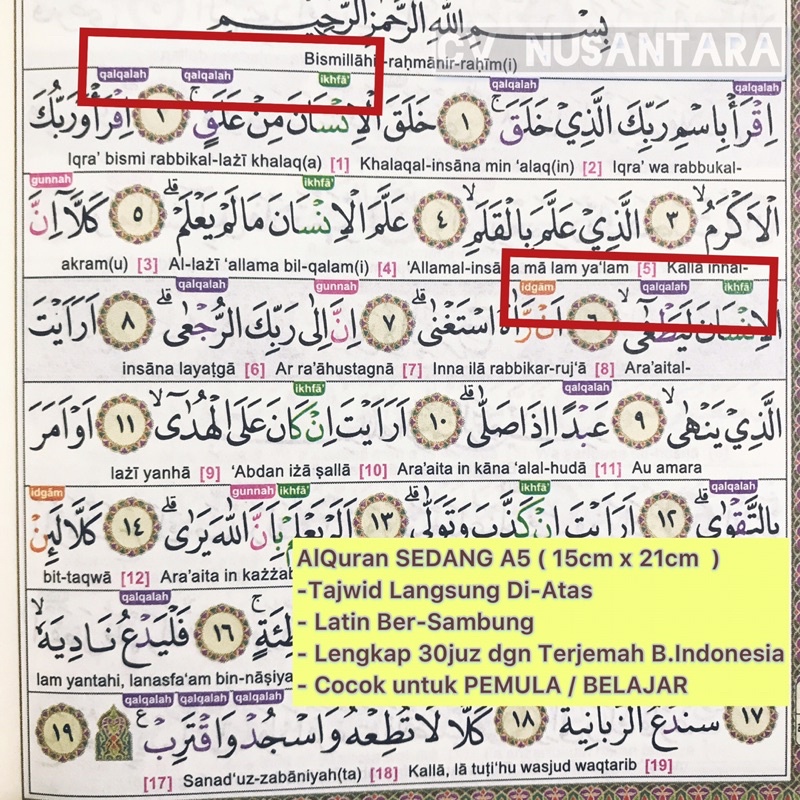 بِسْمِ اللّٰهِ الرَّحْمٰنِ الرَّحِيْمِ
CV NUSANTARA
Bismillāhir-raḥmānir-raḥīm(i)
qalqalah qalqalah ikhfā' qalqalah qalqalah
اِقْرَأْ بِاسْمِ رَبِّكَ الَّذِيْ خَلَقَۚ ١ خَلَقَ الْاِنْسَانَ مِنْ عَلَقٍۚ ٢ اِقْرَأْ وَرَبُّكَ
Iqra' bismi rabbikal-lażī khalaq(a) [1] Khalaqal-insāna min ‘alaq(in) [2] Iqra' wa rabbukal-
gunnah ikhfā'
الْاَكْرَمُۙ ٣ الَّذِيْ عَلَّمَ بِالْقَلَمِۙ ٤ عَلَّمَ الْاِنْسَانَ مَا لَمْ يَعْلَمْۗ ٥ كَلَّآ اِنَّ
akram(u) [3] Al-lażī ‘allama bil-qalam(i) [4] ‘Allamal-insāna mā lam ya‘lam [5] Kallā innal-
qalqalah gunnah idgām qalqalah ikhfā'
الْاِنْسَانَ لَيَطْغٰىٓۙ ٦ اَنْ رَّاٰهُ اسْتَغْنٰىۗ ٧ اِنَّ اِلٰى رَبِّكَ الرُّجْعٰىۗ ٨ اَرَاَيْتَ
insāna layaṭgā [6] Ar ra'āhustagnā [7] Inna ilā rabbikar-ruj‘ā [8] Ara'aital-
ikhfā' qalqalah
الَّذِيْ يَنْهٰىۙ ٩ عَبْدًا اِذَا صَلّٰىۗ ١٠ اَرَاَيْتَ اِنْ كَانَ عَلَى الْهُدٰىٓۙ ١١ اَوْ اَمَرَ
lażī yanhā [9] ‘Abdan iżā ṣallā [10] Ara'aita in kāna ‘alal-hudā [11] Au amara
idgām gunnah ikhfā' ikhfā' qalqalah
بِالتَّقْوٰىۗ ١٢ اَرَاَيْتَ اِنْ كَذَّبَ وَتَوَلّٰىۗ ١٣ اَلَمْ يَعْلَمْ بِاَنَّ اللّٰهَ يَرٰىۗ ١٤ كَلَّا لَىِٕنْ
bit-taqwā [12] Ara'aita in każżab
qalqalah
١٦ فَلْيَدْعُ نَادِيَهٗۙ
lam yantahi, lanasfa‘am bin-nāṣiya
qalqalah qalqalah qalqalah
١٧ سَنَدْعُ الزَّبَانِيَةَ ١٨ كَلَّا لَا تُطِعْهُ وَاسْجُدْ وَاقْتَرِبْ ١٩
[17] Sanad‘uz-zabāniyah(ta) [18] Kallā, lā tuṭi‘hu wasjud waqtarib [19]
AlQuran SEDANG A5 ( 15cm x 21cm )
-Tajwid Langsung Di-Atas
- Latin Ber-Sambung
- Lengkap 30juz dgn Terjemah B.Indonesia
- Cocok untuk PEMULA / BELAJAR